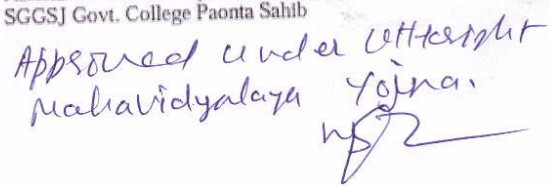 SGGSJ Govt. College Paonta Sahib
Approved under Uttkrisht
Mahavidyalaya Yojna.